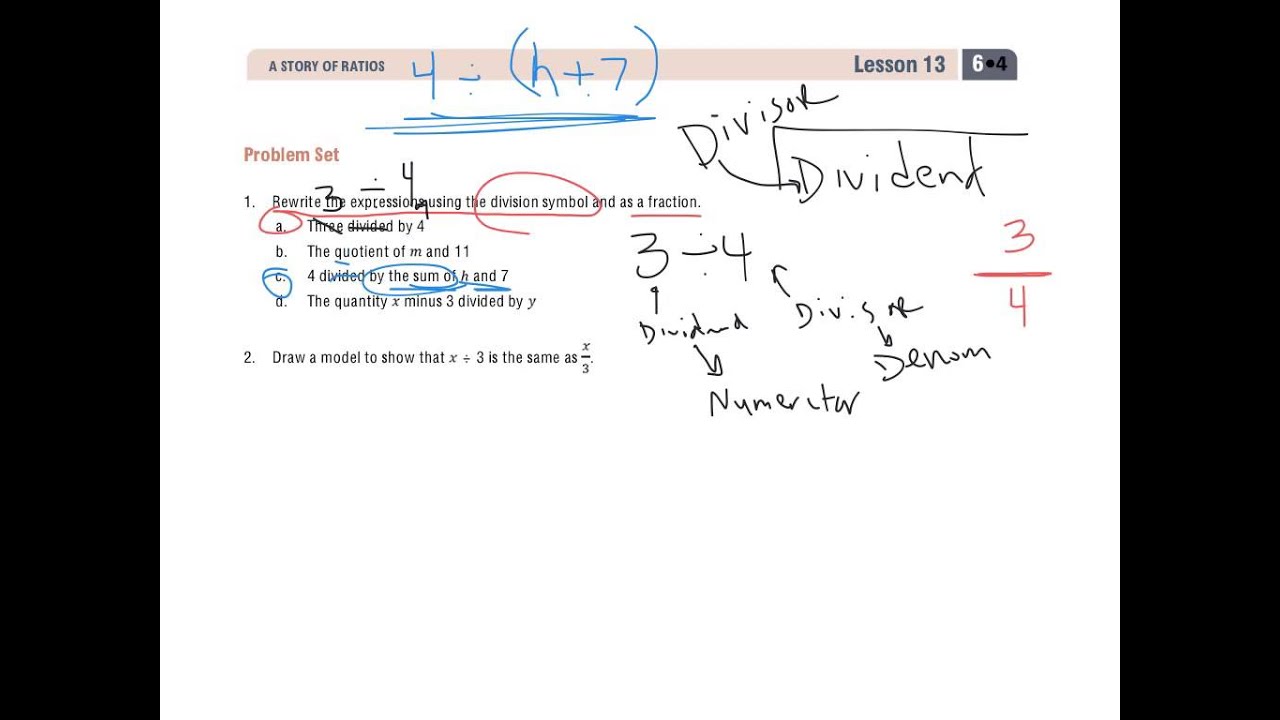 4 ÷ (h + 7)
A STORY OF RATIOS
Lesson 13
6•4
Divisor
Dividend
Problem Set
3 ÷ 4
1. Rewrite the expressions using the division symbol and as a fraction.
a. Three divided by 4
b. The quotient of m and 11
c. 4 divided by the sum of h and 7
d. The quantity x minus 3 divided by y
3 ÷ 4
3
4
Dividend
Divisor
Denom
Numerator
2. Draw a model to show that x ÷ 3 is the same as x/3.